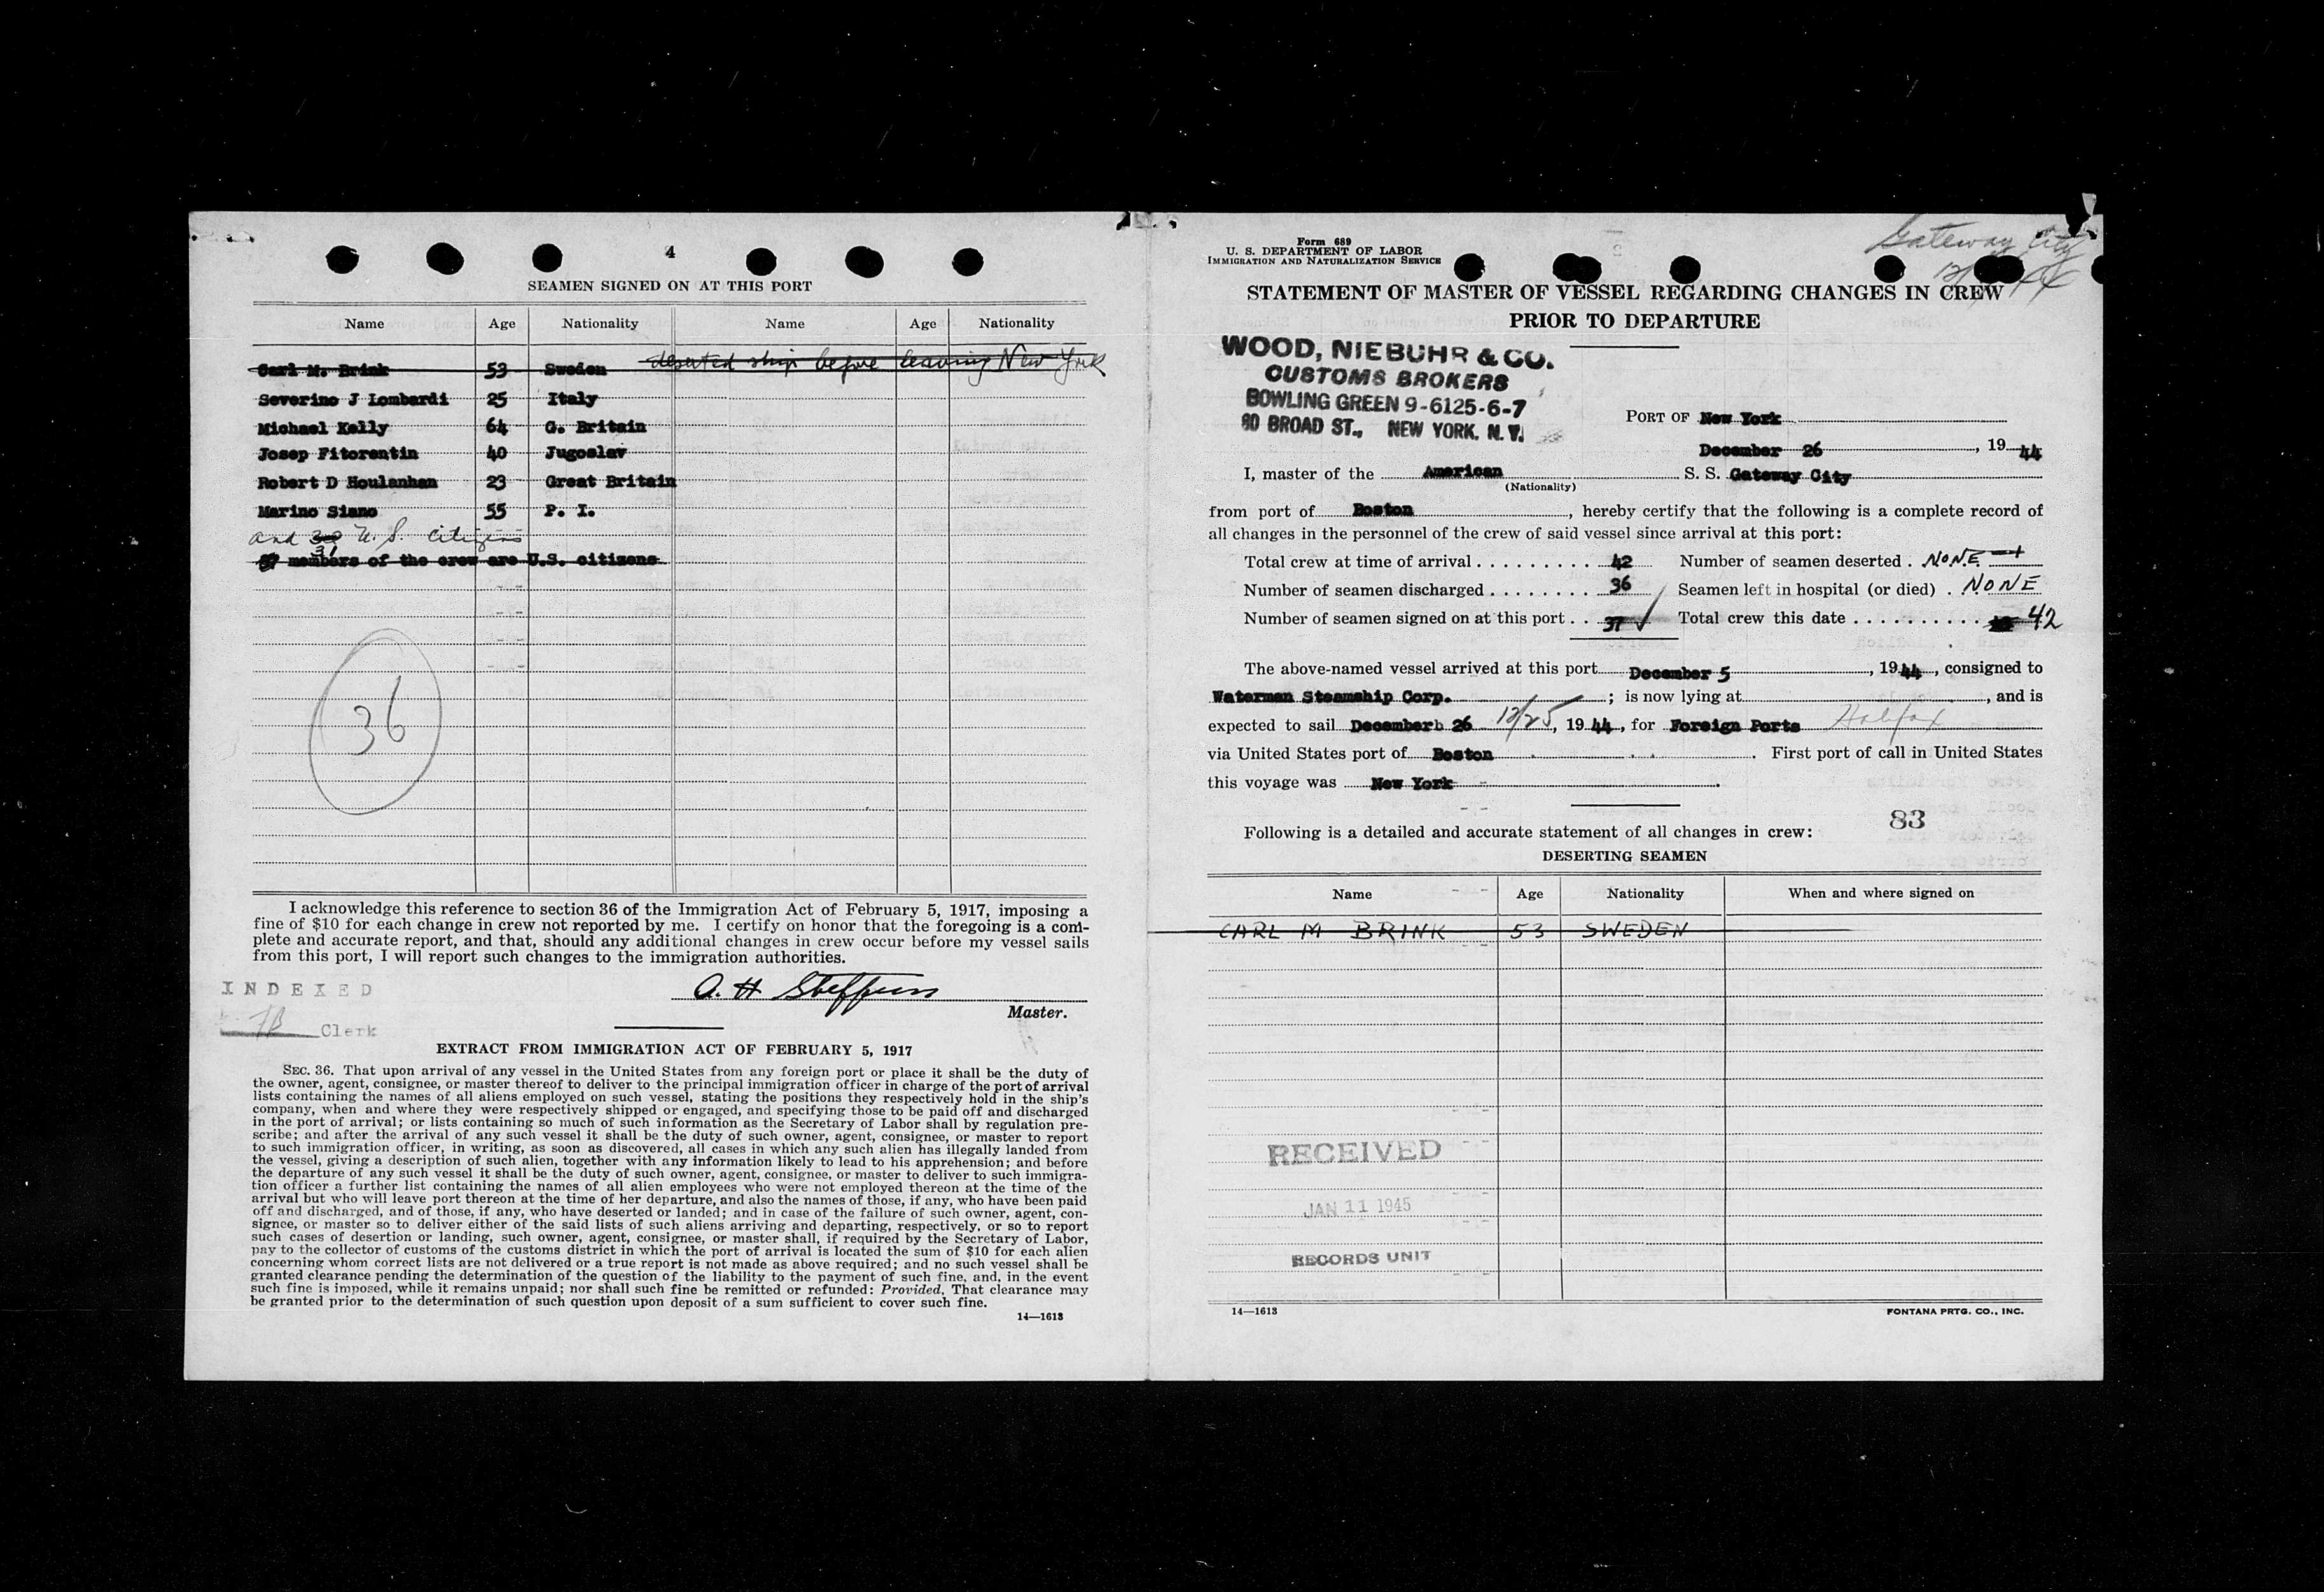 4
SEAMEN SIGNED ON AT THIS PORT
Name Age Nationality Name Age Nationality
Carl M. Brink 53 Sweden deserted ship before leaving New York
Severino J Lombardi 25 Italy
Michael Kelly 64 G. Britain
Josep Fitorentin 40 Jugoslav
Robert D Houlanhan 23 Great Britain
Marino Siano 55 P. I.
and 31 U.S. citizens
37 members of the crew are U.S. citizens
36
I acknowledge this reference to section 36 of the Immigration Act of February 5, 1917, imposing a
fine of $10 for each change in crew not reported by me. I certify on honor that the foregoing is a com-
plete and accurate report, and that, should any additional changes in crew occur before my vessel sails
from this port, I will report such changes to the immigration authorities.
INDEXED
Clerk
A. H Steffens
Master.
EXTRACT FROM IMMIGRATION ACT OF FEBRUARY 5, 1917
SEC. 36. That upon arrival of any vessel in the United States from any foreign port or place it shall be the duty of
the owner, agent, consignee, or master thereof to deliver to the principal immigration officer in charge of the port of arrival
lists containing the names of all aliens employed on such vessel, stating the positions they respectively hold in the ship's
company, when and where they were respectively shipped or engaged, and specifying those to be paid off and discharged
in the port of arrival; or lists containing so much of such information as the Secretary of Labor shall by regulation pre-
scribe; and after the arrival of any such vessel it shall be the duty of such owner, agent, consignee, or master to report
to such immigration officer, in writing, as soon as discovered, all cases in which any such alien has illegally landed from
the vessel, giving a description of such alien, together with any information likely to lead to his apprehension; and before
the departure of any such vessel it shall be the duty of such owner, agent, consignee, or master to deliver to such immigra-
tion officer a further list containing the names of all alien employees who were not employed thereon at the time of the
arrival but who will leave port thereon at the time of her departure, and also the names of those, if any, who have been paid
off and discharged, and of those, if any, who have deserted or landed; and in case of the failure of such owner, agent, con-
signee, or master so to deliver either of the said lists of such aliens arriving and departing, respectively, or so to report
such cases of desertion or landing, such owner, agent, consignee, or master shall, if required by the Secretary of Labor,
pay to the collector of customs of the customs district in which the port of arrival is located the sum of $10 for each alien
concerning whom correct lists are not delivered or a true report is not made as above required; and no such vessel shall be
granted clearance pending the determination of the question of the liability to the payment of such fine, and, in the event
such fine is imposed, while it remains unpaid; nor shall such fine be remitted or refunded: Provided, That clearance may
be granted prior to the determination of such question upon deposit of a sum sufficient to cover such fine.
14—1613
Form 689
U. S. DEPARTMENT OF LABOR
IMMIGRATION AND NATURALIZATION SERVICE
Gateway City
STATEMENT OF MASTER OF VESSEL REGARDING CHANGES IN CREW
PRIOR TO DEPARTURE
WOOD, NIEBUHR & CO.
CUSTOMS BROKERS
BOWLING GREEN 9-6125-6-7
80 BROAD ST., NEW YORK, N. Y.
PORT OF New York
December 26, 1944
I, master of the American S. S. Gateway City
(Nationality)
from port of Boston, hereby certify that the following is a complete record of
all changes in the personnel of the crew of said vessel since arrival at this port:
Total crew at time of arrival 42 Number of seamen deserted . NONE 1
Number of seamen discharged 36 Seamen left in hospital (or died) . NONE
Number of seamen signed on at this port . . 37 Total crew this date 42
The above-named vessel arrived at this port December 5, 1944, consigned to
Waterman Steamship Corp. ; is now lying at , and is
expected to sail December 26 12/25, 1944, for Foreign Ports Halifax
via United States port of Boston. First port of call in United States
this voyage was New York.
83
Following is a detailed and accurate statement of all changes in crew:
DESERTING SEAMEN
Name Age Nationality When and where signed on
CARL M BRINK 53 SWEDEN
RECEIVED
JAN 11 1945
RECORDS UNIT
14—1613
FONTANA PRTG. CO., INC.